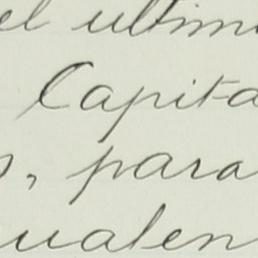 el ultim
Capita
s, para
ualen